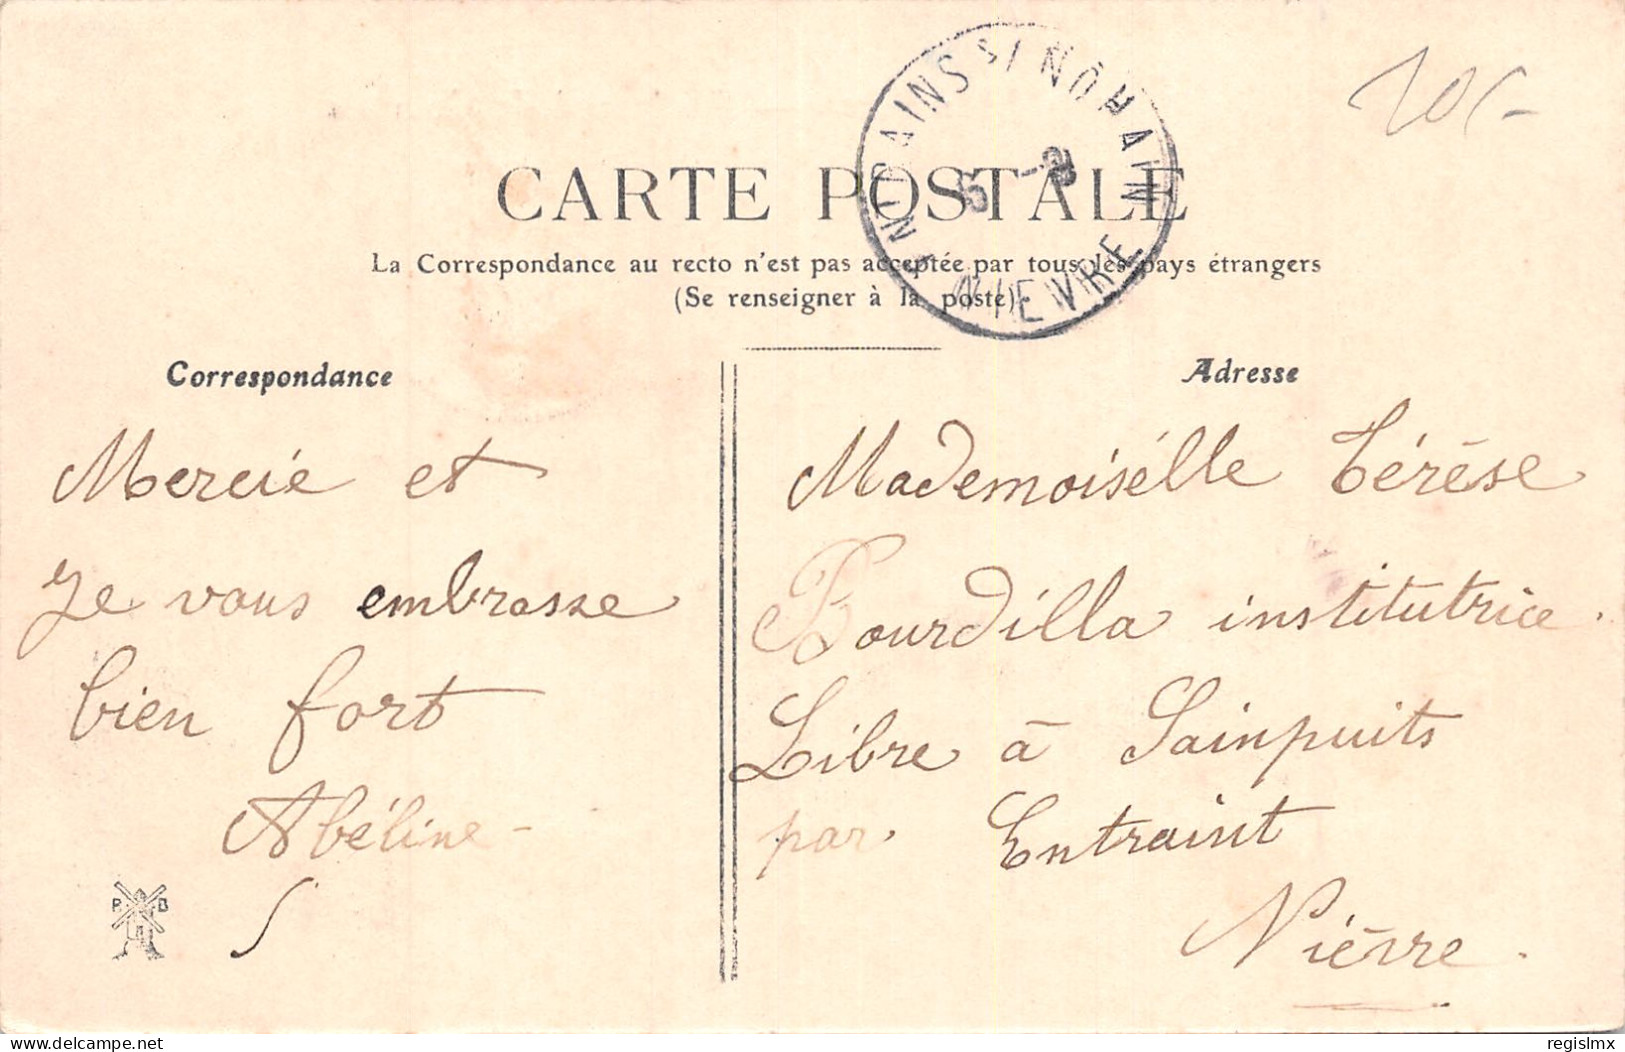 CARTE POSTALE
La Correspondance au recto n'est pas acceptée par tous les pays étrangers
(Se renseigner à la poste)
Correspondance
Mercie et
Je vous embrasse
bien fort
Abéline
P B
Adresse
Mademoisélle Térése
Bourdilla institutrice
Libre à Sainpuits
par. Entraint
Nièvre.
delcampe.net
regislmx